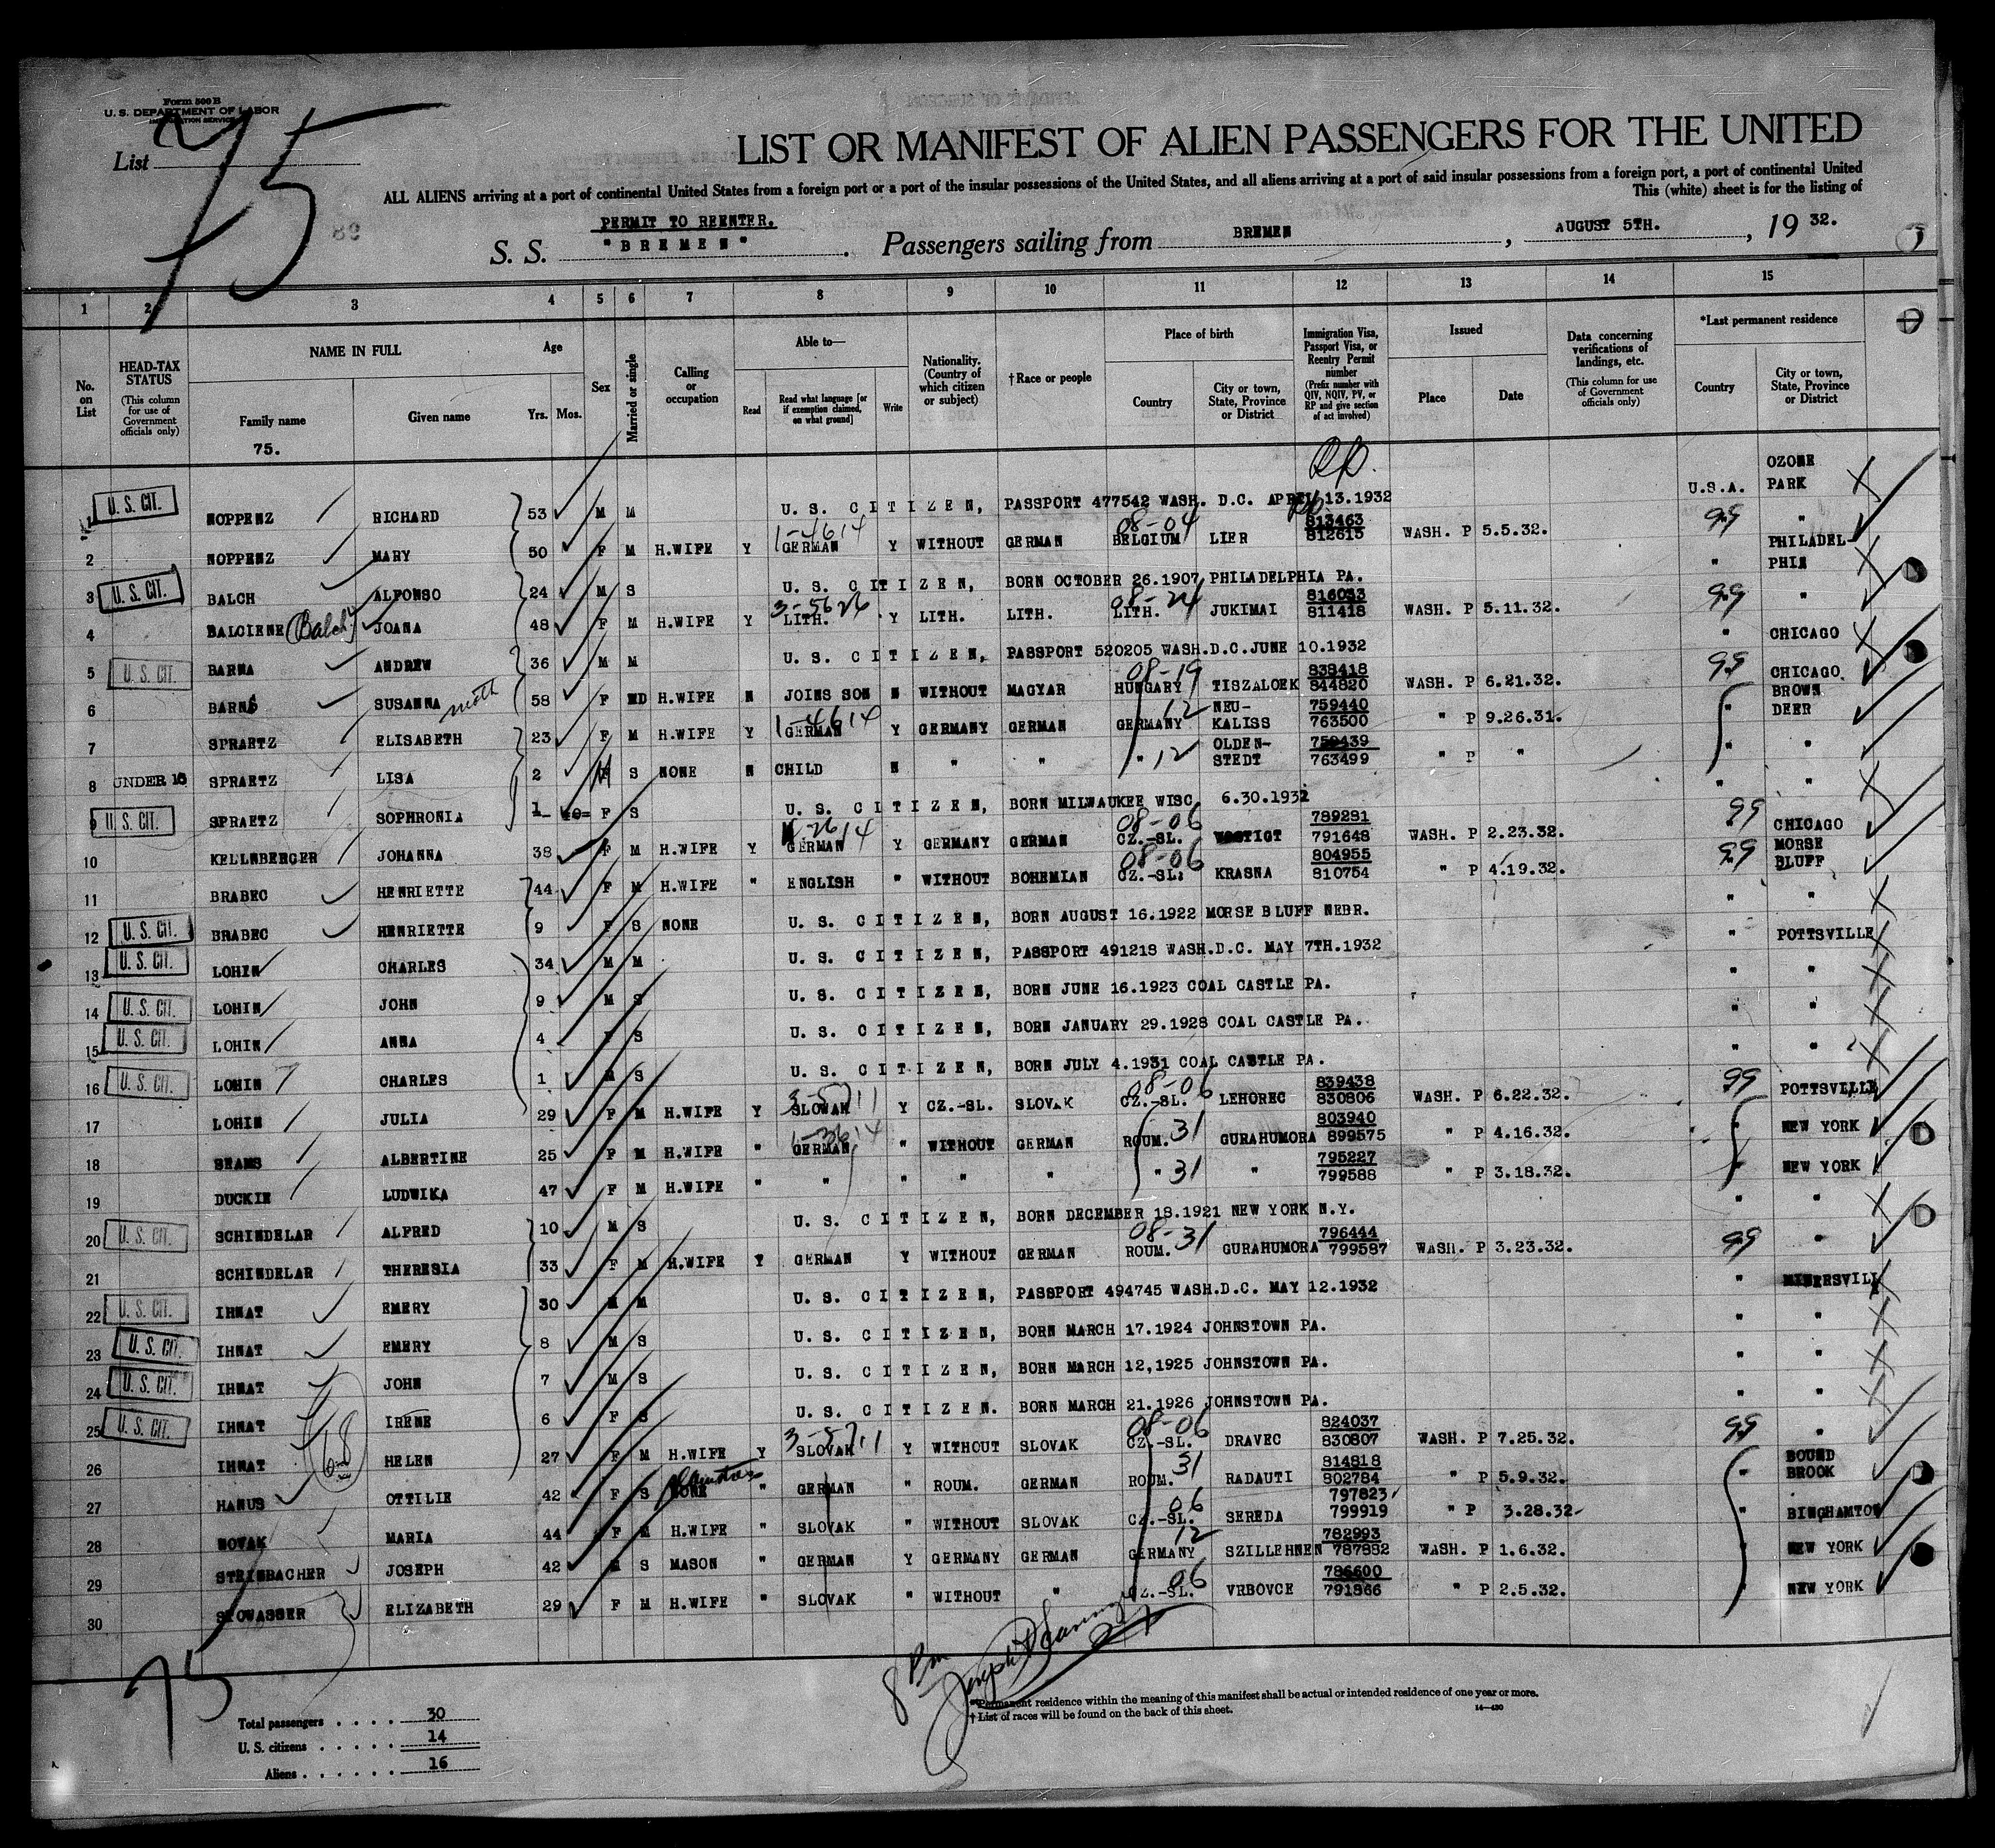 Form 500 B
U. S. DEPARTMENT OF LABOR
IMMIGRATION SERVICE
List 75
LIST OR MANIFEST OF ALIEN PASSENGERS FOR THE UNITED
ALL ALIENS arriving at a port of continental United States from a foreign port or a port of the insular possessions of the United States, and all aliens arriving at a port of said insular possessions from a foreign port, a port of continental United
This (white) sheet is for the listing of
PERMIT TO REENTER.
S. S. "BREMEN". Passengers sailing from BREMEN, AUGUST 5TH., 19 32.
1 2 3 4 5 6 7 8 9 10 11 12 13 14 15
No. on List
HEAD-TAX STATUS (This column for use of Government officials only)
NAME IN FULL
Family name
Given name
Age
Yrs. Mos.
Sex
Married or single
Calling or occupation
Able to—
Read
Read what language [or if exemption claimed, on what ground]
Write
Nationality. (Country of which citizen or subject)
†Race or people
Place of birth
Country
City or town, State, Province or District
Immigration Visa, Passport Visa, or Reentry Permit number (Prefix number with QIV, NQIV, PV, or RP and give section of act involved)
Issued
Place
Date
Data concerning verifications of landings, etc. (This column for use of Government officials only)
*Last permanent residence
Country
City or town, State, Province or District
75.
1 U. S. CIT. NOPPENZ RICHARD 53 M M U. S. CITIZEN, PASSPORT 477542 WASH. D.C. APRIL 13.1932 U.S.A. OZONE PARK
2 NOPPENZ MARY 50 F M H.WIFE Y 1-4614 GERMAN Y WITHOUT GERMAN 08-04 BELGIUM LIER 813463 812615 WASH. P 5.5.32. 99 "
3 U. S. CIT. BALCH ALFONSO 24 M S U. S. CITIZEN, BORN OCTOBER 26.1907 PHILADELPHIA PA. " PHILADELPHIN
4 BALCIENE (Balch) JOANA 48 F M H.WIFE Y 3-5626 LITH. Y LITH. LITH. 08-24 LITH. JUKIMAI 816033 811418 WASH. P 5.11.32. 99 "
5 U. S. CIT. BARNA ANDREW 36 M M U. S. CITIZEN, PASSPORT 520205 WASH.D.C. JUNE 10.1932 " CHICAGO
6 BARNA SUSANNA moth 58 F WD H.WIFE N JOINS SON N WITHOUT MAGYAR 08-19 HUNGARY TISZALOEK 838418 844820 WASH. P 6.21.32. 99 CHICAGO
7 SPRAETZ ELISABETH 23 F M H.WIFE Y 1-4614 GERMAN Y GERMANY GERMAN 12 GERMANY NEU-KALISS 759440 763500 " P 9.26.31. " BROWN DEER
8 UNDER 16 SPRAETZ LISA 2 F S NONE N CHILD N " " " 12 OLDEN-STEDT 759439 763499 " P " " "
9 U. S. CIT. SPRAETZ SOPHRONIA 1 F S U. S. CITIZEN, BORN MILWAUKEE WISC. 6.30.1932 " "
10 KELLNBERGER JOHANNA 38 F M H.WIFE Y GERMAN Y GERMANY GERMAN 08-06 CZ.-SL. 789281 791648 WASH. P 2.23.32. 99 CHICAGO
11 BRABEC HENRIETTE 44 F M H.WIFE " ENGLISH " WITHOUT BOHEMIAN 08-06 CZ.-SL. KRASNA 804955 810754 " P 4.19.32. 99 MORSE BLUFF
12 U. S. CIT. BRABEC HENRIETTE 9 F S NONE U. S. CITIZEN, BORN AUGUST 16.1922 MORSE BLUFF NEBR. " "
13 U. S. CIT. LOHIN CHARLES 34 M M U. S. CITIZEN, PASSPORT 491218 WASH.D.C. MAY 7TH.1932 " POTTSVILLE
14 U. S. CIT. LOHIN JOHN 9 M S U. S. CITIZEN, BORN JUNE 16.1923 COAL CASTLE PA. " "
15 U. S. CIT. LOHIN ANNA 4 F S U. S. CITIZEN, BORN JANUARY 29.1928 COAL CASTLE PA. " "
16 U. S. CIT. LOHIN CHARLES 1 M S U. S. CITIZEN, BORN JULY 4.1931 COAL CASTLE PA. " "
17 LOHIN JULIA 29 F M H.WIFE Y 3-5711 SLOVAK Y CZ.-SL. SLOVAK 08-06 CZ.-SL. LEHOREC 839438 830806 WASH. P 6.22.32. 99 POTTSVILLE
18 BEAMS ALBERTINE 25 F M H.WIFE " 1-3614 GERMAN " WITHOUT GERMAN 31 ROUM. GURAHUMORA 803940 899575 " P 4.16.32. " NEW YORK
19 DUCKIE LUDWIKA 47 F M H.WIFE " " " " " " 31 " 795227 799588 " P 3.18.32. " NEW YORK
20 U. S. CIT. SCHINDELAR ALFRED 10 M S U. S. CITIZEN, BORN DECEMBER 18.1921 NEW YORK N.Y. " "
21 SCHINDELAR THERESIA 33 F M H.WIFE Y GERMAN Y WITHOUT GERMAN 08-31 ROUM. GURAHUMORA 796444 799587 WASH. P 3.23.32. 99 "
22 U. S. CIT. IHNAT EMERY 30 M M U. S. CITIZEN, PASSPORT 494745 WASH.D.C. MAY 12.1932 " MINERSVILL
23 U. S. CIT. IHNAT EMERY 8 M S U. S. CITIZEN, BORN MARCH 17.1924 JOHNSTOWN PA. " "
24 U. S. CIT. IHNAT JOHN 7 M S U. S. CITIZEN, BORN MARCH 12,1925 JOHNSTOWN PA. " "
25 U. S. CIT. IHNAT IRENE 6 F S U. S. CITIZEN. BORN MARCH 21.1926 JOHNSTOWN PA. " "
26 IHNAT HELEN 27 F M H.WIFE Y 3-5711 SLOVAK Y WITHOUT SLOVAK 08-06 CZ.-SL. DRAVEC 824037 830807 WASH. P 7.25.32. 99 "
27 HANUS OTTILIE 42 F S NONE " GERMAN " ROUM. GERMAN 31 ROUM. RADAUTI 814818 802784 " P 5.9.32. " BOUND BROOK
28 NOVAK MARIA 44 F M H.WIFE " SLOVAK " WITHOUT SLOVAK 06 CZ.-SL. SEREDA 797823 799919 " P 3.28.32 " BINGHAMTON
29 STEINBACHER JOSEPH 42 M S MASON " GERMAN Y GERMANY GERMAN 12 GERMANY SZILLEHNEN 782993 787852 WASH. P 1.6.32. " NEW YORK
30 STOWASSER ELIZABETH 29 F M H.WIFE " SLOVAK " WITHOUT " 06 CZ.-SL. VRBOVCE 786600 791866 " P 2.5.32. " NEW YORK
75
8 Pm
*Permanent residence within the meaning of this manifest shall be actual or intended residence of one year or more.
†List of races will be found on the back of this sheet.
14—430
Total passengers . . . . 30
U. S. citizens . . . . . 14
Aliens . . . . . . 16